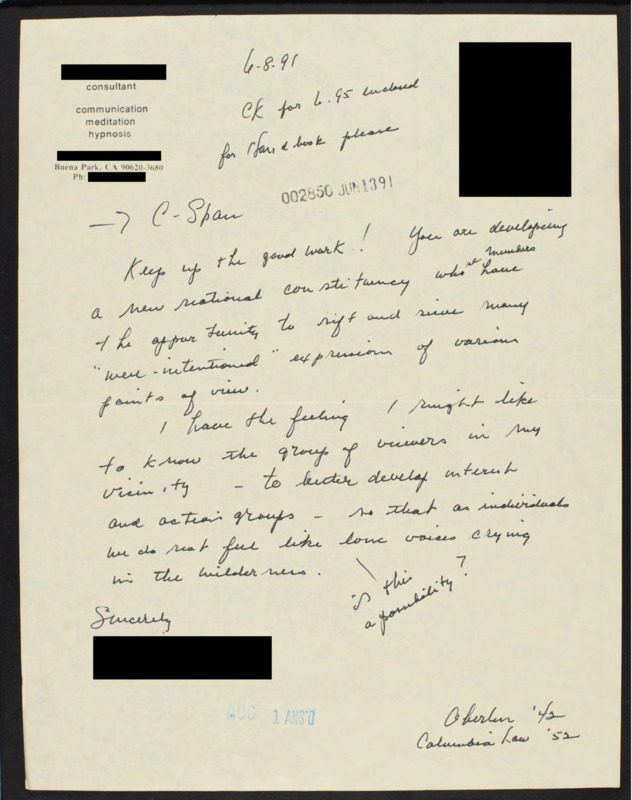 consultant
communication
meditation
hypnosis
Buena Park, CA 90620-3680
Ph:
6-8-91
CK for 6.95 enclosed
for Hand book please
002850 JUN1391
→ C-Span
Keep up the good work! You are developing
a new national constituency whose members have
the opportunity to sift and sieve many
"well-intentioned" expressions of various
points of view.
I have the feeling I might like
to know the group of viewers in my
vicinity - to better develop interest
and action groups - so that as individuals
we do not feel like lone voices crying
in the wilderness.
is this
a possibility?
Sincerely
AUG 1 ANS'D
Oberlin '42
Columbia Law '52